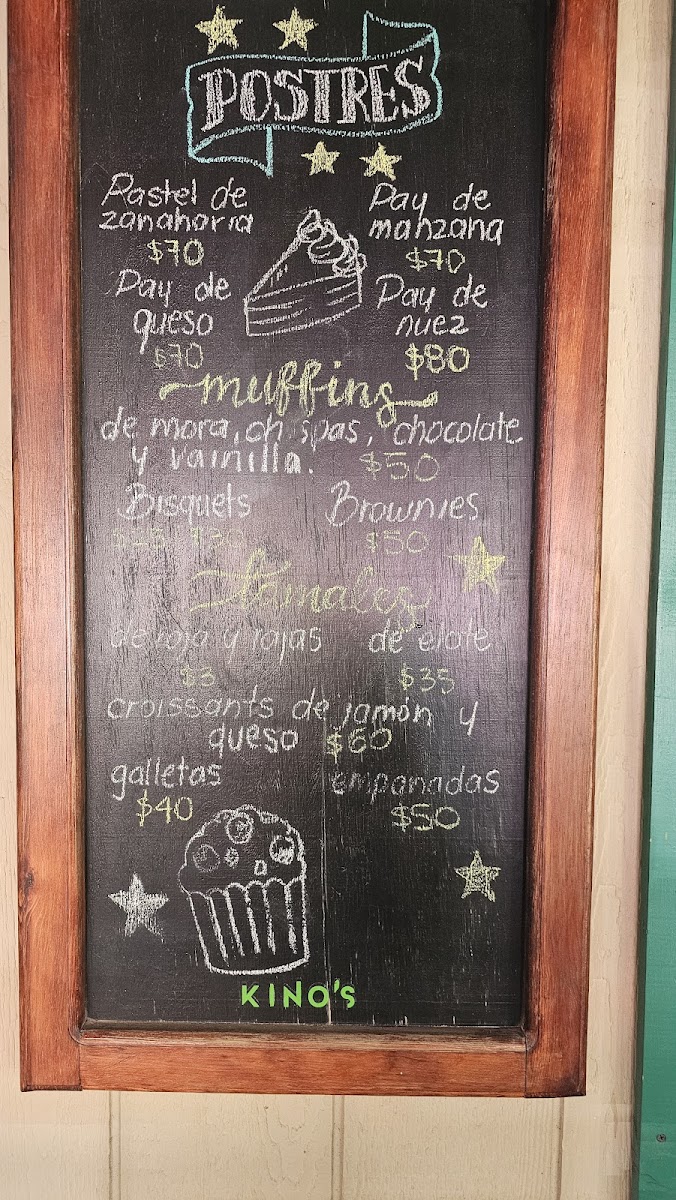 POSTRES
Pastel de
zanahoria
$70
Pay de
manzana
$70
Pay de
queso
$70
Pay de
nuez
$80
muffins
de mora, chispas, chocolate
y vainilla. $50
Bisquets
$30
Brownies
$50
tamales
de roja y rajas
$3
de elote
$35
croissants de jamón y
queso $60
galletas
$40
empanadas
$50
KINO'S